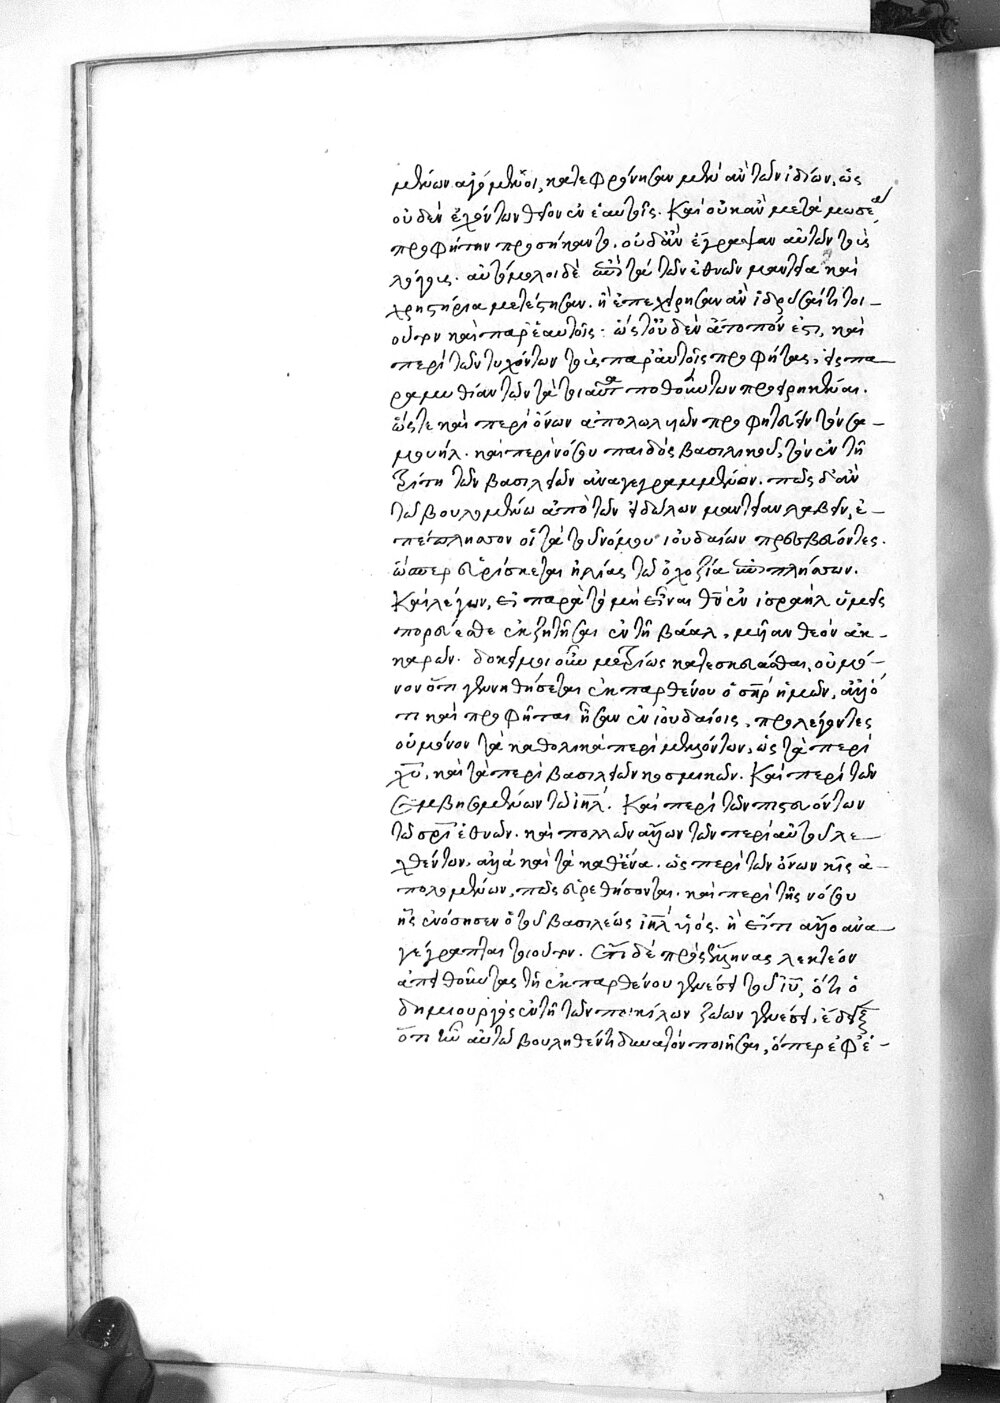 μένων ἀγόμενοι, κατεφρόνησαν μὲν ἂν τῶν ἰδίων, ὡς
οὐδὲν ἐχόντων θεῖον ἐν ἑαυτοῖς. Καὶ οὐκ ἂν μετὰ μωσέα
προφήτην προσήκαντο. οὐδ' ἂν ἔγραψαν αὐτῶν τοὺς
λόγους. αὐτόμολοι δὲ ἐπὶ τὰ τῶν ἐθνῶν μαντεῖα καὶ
χρηστήρια μετέστησαν. ἢ ἐπεχείρησαν ἂν ἱδρῦσαί τι τοι-
οῦτον καὶ παρ' ἑαυτοῖς· ὥστ' οὐδὲν ἄτοπόν ἐστι, καὶ
περὶ τῶν τυχόντων τοὺς παρ' αὐτοῖς προφήτας, εἰς πα-
ραμυθίαν τῶν τὰ τοιαῦτα ποθούντων προειρηκέναι.
ὥστε καὶ περὶ ὄνων ἀπολωλυιῶν προφητεύειν τὸν σα-
μουήλ. καὶ περὶ νόσου παιδὸς βασιλικοῦ, τὸν ἐν τῇ
τρίτῃ τῶν βασιλειῶν ἀναγεγραμμένον. πῶς δ' ἂν
τῷ βουλομένῳ ἀπὸ τῶν εἰδώλων μαντείαν λαβεῖν, ἐ-
πέπλησσον οἱ τὰ τοῦ νόμου ἰουδαίων πρεσβεύοντες.
ὥσπερ εὑρίσκεται ἠλίας τῷ ὀχοζίᾳ ἐπιπλήσσων.
Καὶ λέγων, εἰ παρὰ τὸ μὴ εἶναι θν ἐν ἰσραὴλ ὑμεῖς
πορεύεσθε ἐκζητῆσαι ἐν τῇ βάαλ, μυῖαν θεὸν ἀκ-
καρών. δοκεῖ μοι οὖν μετρίως κατεσκευάσθαι, οὐ μό-
νον ὅτι γεννηθήσεται ἐκ παρθένου ὁ σηρ ἡμῶν, ἀλλ' ὅ-
τι καὶ προφῆται ἦσαν ἐν ἰουδαίοις, προλέγοντες
οὐ μόνον τὰ καθολικὰ περὶ μελλόντων, ὡς τὰ περὶ
χυ, καὶ τὰ περὶ βασιλειῶν κοσμικῶν. Καὶ περὶ τῶν
συμβησομένων τῷ ιηλ. Καὶ περὶ τῶν πιστευόντων
τῷ σρι ἐθνῶν. καὶ πολλῶν ἄλλων τῶν περὶ αὐτοῦ λε-
χθέντων. ἀλλὰ καὶ τὰ καθ' ἕνα. ὡς περὶ τῶν ὄνων κὶς ἀ-
πολομένων, πῶς εὑρεθήσονται. καὶ περὶ τῆς νόσου
ἧς ἐνόσησεν ὁ τοῦ βασιλέως ιηλ υἱός. ἢ εἴ τι ἄλλο ἀνα-
γέγραπται τοιοῦτον. Ἔτι δὲ πρὸς ἕλληνας λεκτέον
ἀπειθοῦντας τῇ ἐκ παρθένου γενέσει τοῦ ιυ, ὅτι ὁ
δημιουργὸς ἐν τῇ τῶν ποικίλων ζώων γενέσει, ἔδειξεν
ὅτι ἦν αὐτῷ βουληθέντι δυνατὸν ποιῆσαι, ὅπερ ἐφ' ἑ-